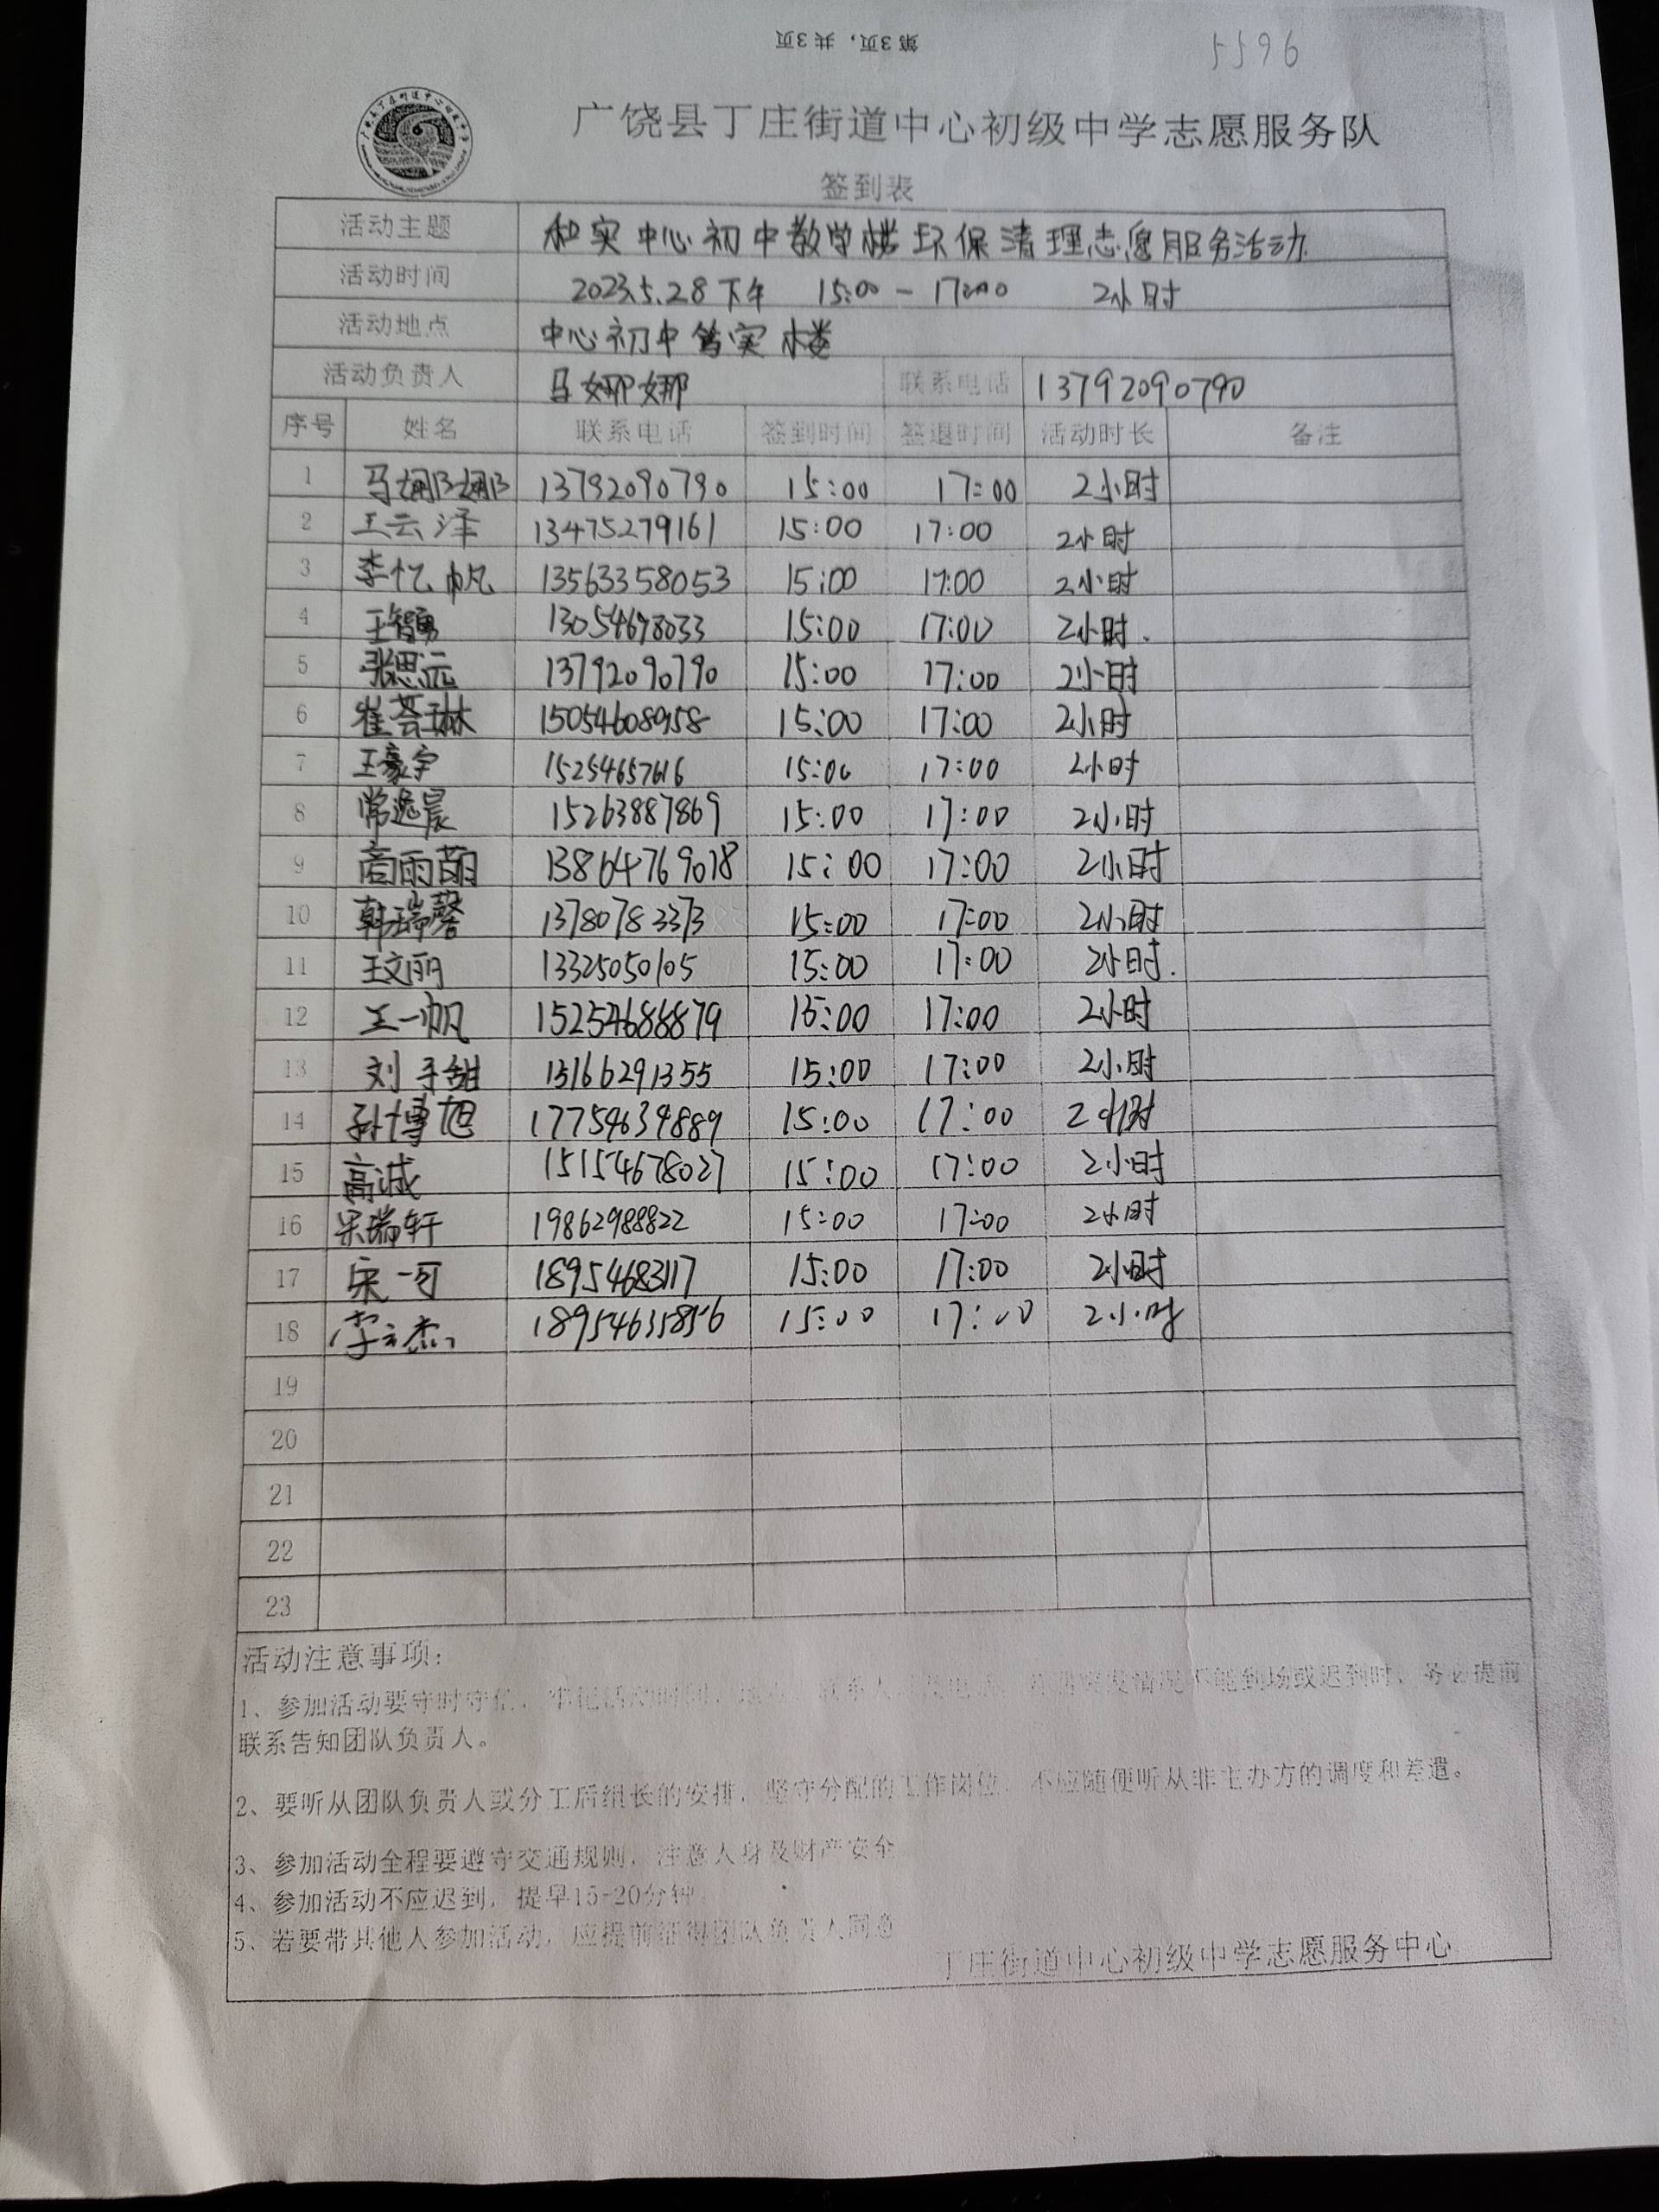 第3页，共3页
5596
广饶县丁庄街道中心初级中学志愿服务队
签到表
活动主题 和实中心初中教学楼环保清理志愿服务活动
活动时间 2023.5.28下午 15:00-17:00 2小时
活动地点 中心初中笃实楼
活动负责人 马娜娜 联系电话 13792090790
序号 姓名 联系电话 签到时间 签退时间 活动时长 备注
1 马娜娜 13792090790 15:00 17:00 2小时
2 王云泽 13475279161 15:00 17:00 2小时
3 李忆帆 13563358053 15:00 17:00 2小时
4 王智勇 13054678033 15:00 17:00 2小时.
5 张思远 13792090790 15:00 17:00 2小时
6 崔荟琳 15054608958 15:00 17:00 2小时
7 王豪宇 15254657616 15:00 17:00 2小时
8 常逸晨 15263887869 15:00 17:00 2小时
9 商雨萌 13864769018 15:00 17:00 2小时
10 韩瑞馨 13780783373 15:00 17:00 2小时
11 王文丽 13325050105 15:00 17:00 2小时.
12 王一帆 15254686879 15:00 17:00 2小时
13 刘子甜 13166291355 15:00 17:00 2小时
14 孙博旭 17754634889 15:00 17:00 2小时
15 高诚 15154678027 15:00 17:00 2小时
16 宋瑞轩 19862988822 15:00 17:00 2小时
17 宋一可 18954683117 15:00 17:00 2小时
18 李立杰 18954635856 15:00 17:00 2小时
19
20
21
22
23
活动注意事项：
1、参加活动要守时守信，牢记活动时间、地点、联系人及电话，若遇突发情况不能到场或迟到时，务必提前
联系告知团队负责人。
2、要听从团队负责人或分工后组长的安排，坚守分配的工作岗位，不应随便听从非主办方的调度和差遣。
3、参加活动全程要遵守交通规则，注意人身及财产安全
4、参加活动不应迟到，提早15-20分钟
5、若要带其他人参加活动，应提前征得团队负责人同意
丁庄街道中心初级中学志愿服务中心